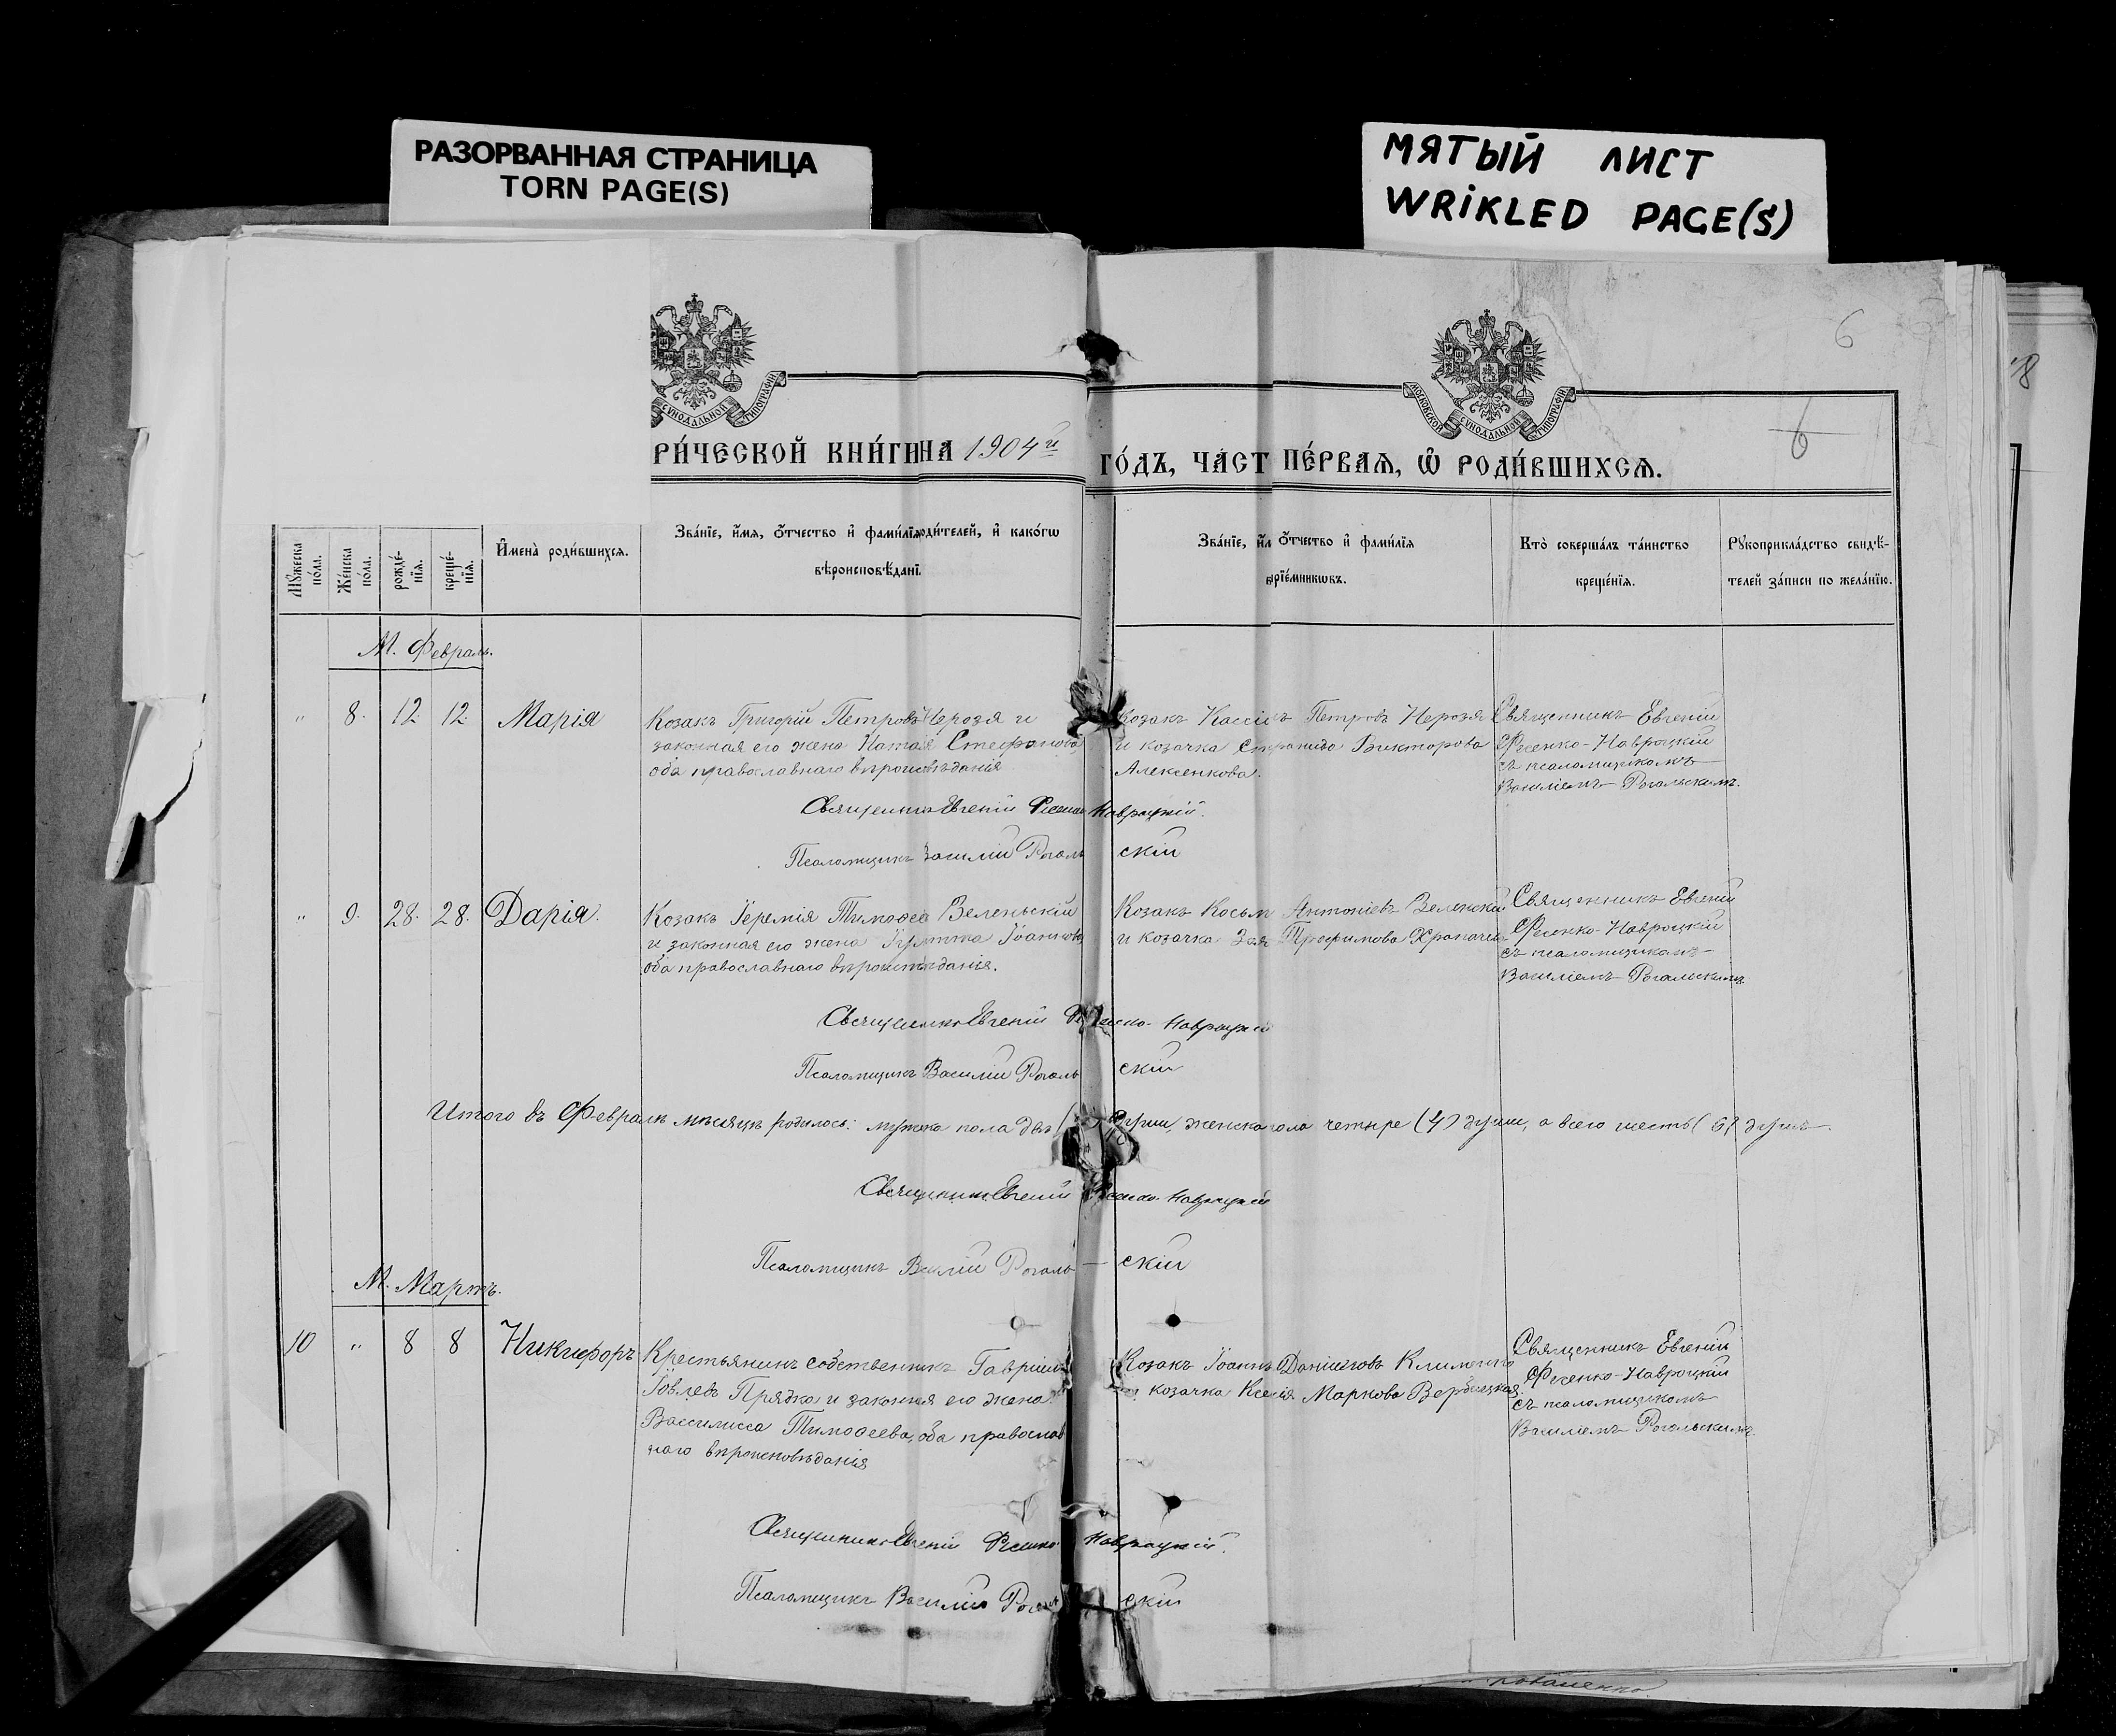 РАЗОРВАННАЯ СТРАНИЦА
TORN PAGE(S)
МЯТЫЙ ЛИСТ
WRIKLED PAGE(S)
6
18
СѴНОДАЛЬНОЙ ТИПОГРАФІИ
МОСКОВСКОЙ СѴНОДАЛЬНОЙ ТИПОГРАФІИ
6
РИ́ЧЕСКОЙ КНИ́ГИ НА 1904й ГО́ДЪ, ЧАСТ ПЕ́РВАѦ, Ѽ РОДИ́ВШИХСѦ.
Мꙋжеска по́ла.
Же́нска по́ла.
рожде́-нїѧ.
креще́-нїѧ.
И҆мена̀ роди́вшихсѧ.
Зва́нїе, и҆́мѧ, ѻ҆́тчество и҆ фами́лїѧ оди́телей, и҆ како́гѡ
вѣроисповѣ́данї
Зва́нїе, и҆́м ѻ҆́тчество и҆ фами́лїѧ
прїе́мникѡвъ.
Кто̀ соверша́лъ та́инство
креще́нїѧ.
Рꙋкоприкла́дство свидѣ́-
телей за́писи по жела́нїю.
М. Февраль.
" 8. 12 12. Марія
Козакъ Григорій Петровъ Нерозя и
законная его жена Стефанова,
оба православнаго вѣроисповѣданія
Козакъ Петровъ Нерозя
и козачка Викторова
Алексенкова.
Священникъ Евгеній
Фесенко-Навроцкій
съ псаломщикомъ
Василіемъ Рогальскимъ.
Священникъ Евгеній Фесенко Навроцкій.
Псаломщикъ Василій Рогаль скій
" 9. 28. 28. Дарія.
Козакъ Іеремія Зеленьскій
и законная его жена Іоаннова
оба православнаго вѣроисповѣданія.
Козакъ Косьм Антоніевъ Зеленскій
и козачка Трофимова
Священникъ Евгеній
Фесенко-Навроцкій
съ псаломщикомъ
Василіемъ Рогальскимъ
Священникъ Евгеній Фесенко-Навроцкій
Псаломщикъ Василій Рогаль скій
Итого въ Февралѣ мѣсяцѣ родилось: мужска пола двѣ души, женска пола четыре (4) души, а всего шесть (6) душъ.
Священникъ Евгеній Фесенко-Навроцкій
Псаломщикъ Василій Рогаль — скій
М. Мартъ.
10 " 8 8 Никифоръ
Крестьянинъ собственникъ Гавріилъ
Прядка и законная его жена
Василисса Тимофеева, оба православ
наго вѣроисповѣданія
Козакъ Іоаннъ Даніиловъ Клименко
и козачка Ксенія Маркова
Священникъ Евгеній
Фесенко-Навроцкій
съ псаломщикомъ
Василіемъ Рогальскимъ.
Священникъ Евгеній Фесенко Навроцкій.
Псаломщикъ Василій Рогаль скій